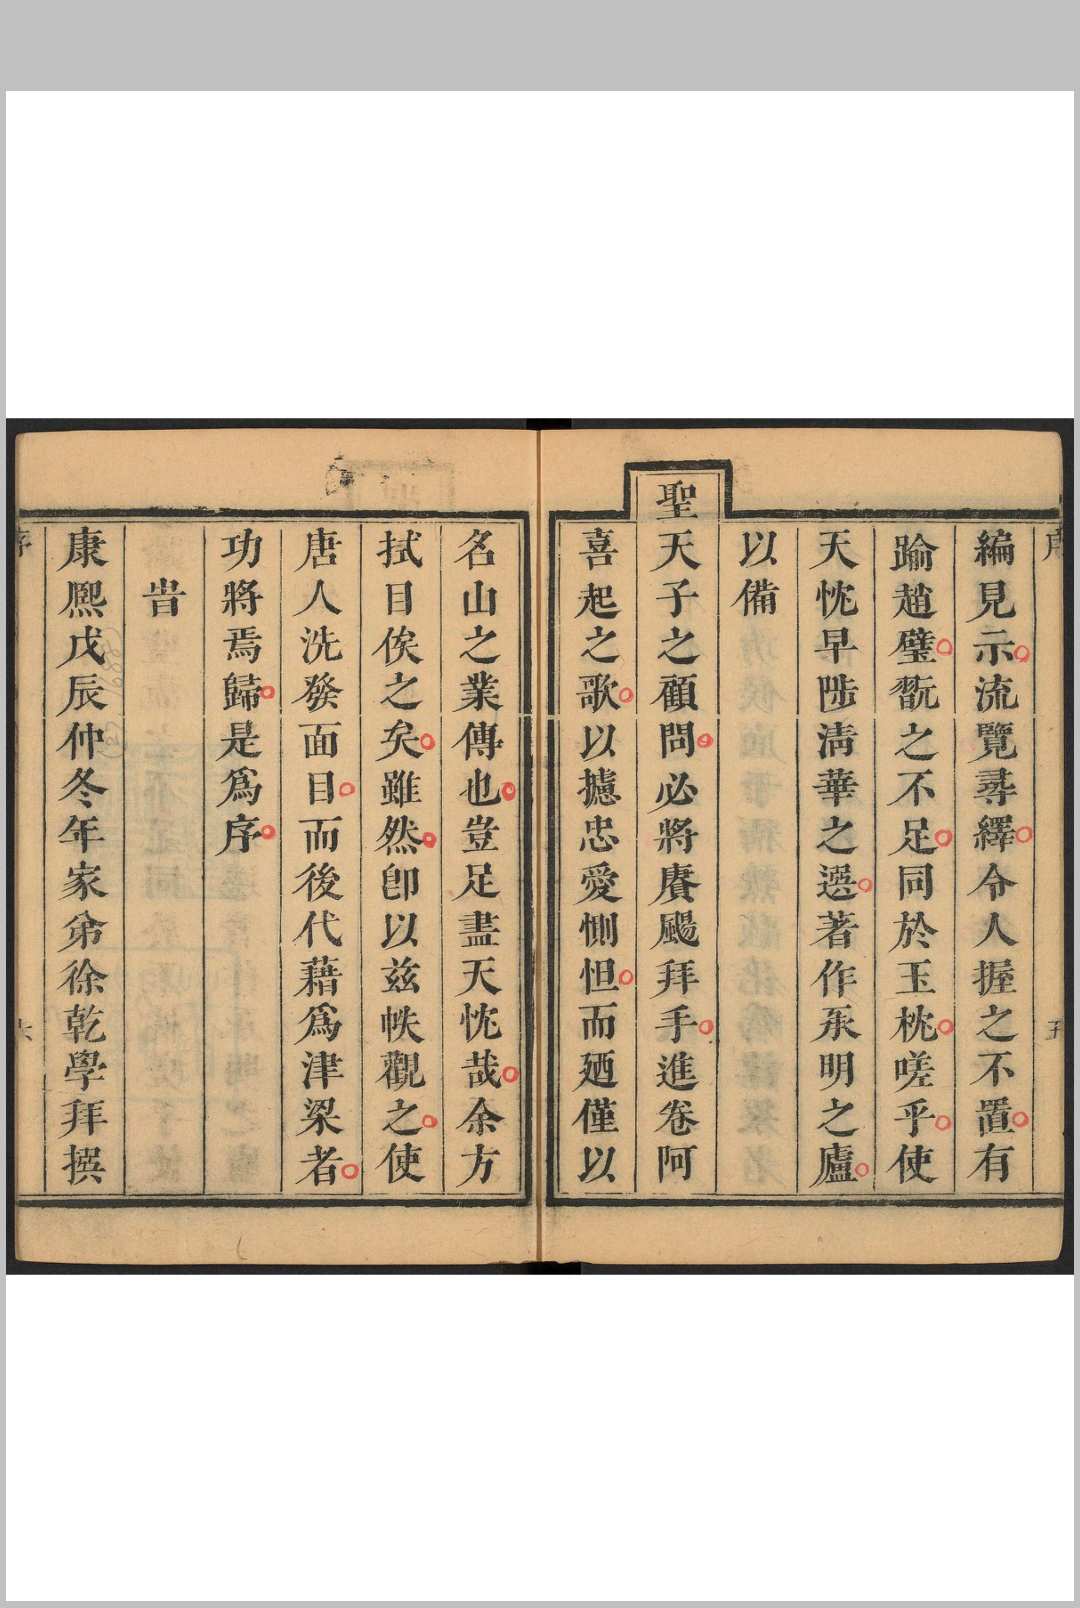 序
編見示流覽尋繹令人握之不置有
踰趙璧翫之不足同於玉枕嗟乎使
天忱早陟淸華之選著作承明之廬
以備
聖天子之顧問必將賡颺拜手進卷阿
喜起之歌以攄忠愛惻怛而廼僅以
五
名山之業傳也豈足盡天忱哉余方
拭目俟之矣雖然卽以兹帙觀之使
唐人洗發面目而後代藉爲津梁者
功將焉歸是爲序
旹
康熈戊辰仲冬年家弟徐乾學拜撰
序
六